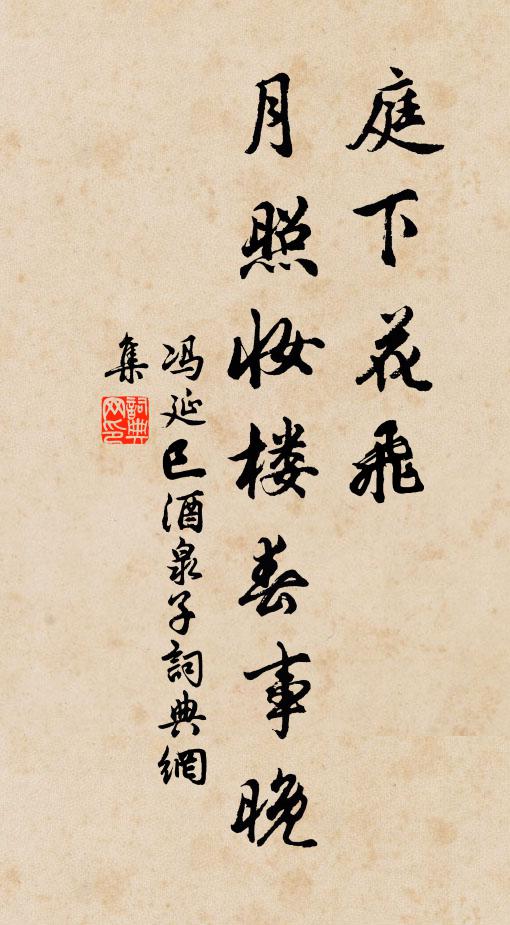 庭下花飛
月照妆楼春事晚
冯延巳酒泉子詞典網
集
詞典网印